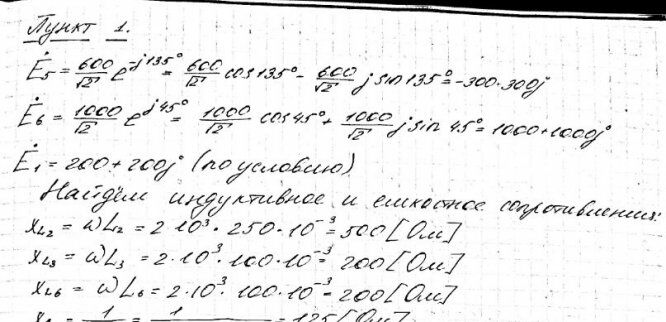 Пункт 1.
Ė₅ = 600/√2 e^-j135° = 600/√2 cos135° - 600/√2 j sin135° = -300-300j
Ė₆ = 1000/√2 e^j45° = 1000/√2 cos45° + 1000/√2 j sin45° = 1000+1000j
Ė₁ = 200+200j (по условию)
Найдём индуктивное и емкостное сопротивления:
x_L2 = ωL₂ = 2·10³·250·10⁻³ = 500 [Ом]
x_L3 = ωL₃ = 2·10³·100·10⁻³ = 200 [Ом]
x_L6 = ωL₆ = 2·10³·100·10⁻³ = 200 [Ом]
= 1 = 1 = 125 [Ом]